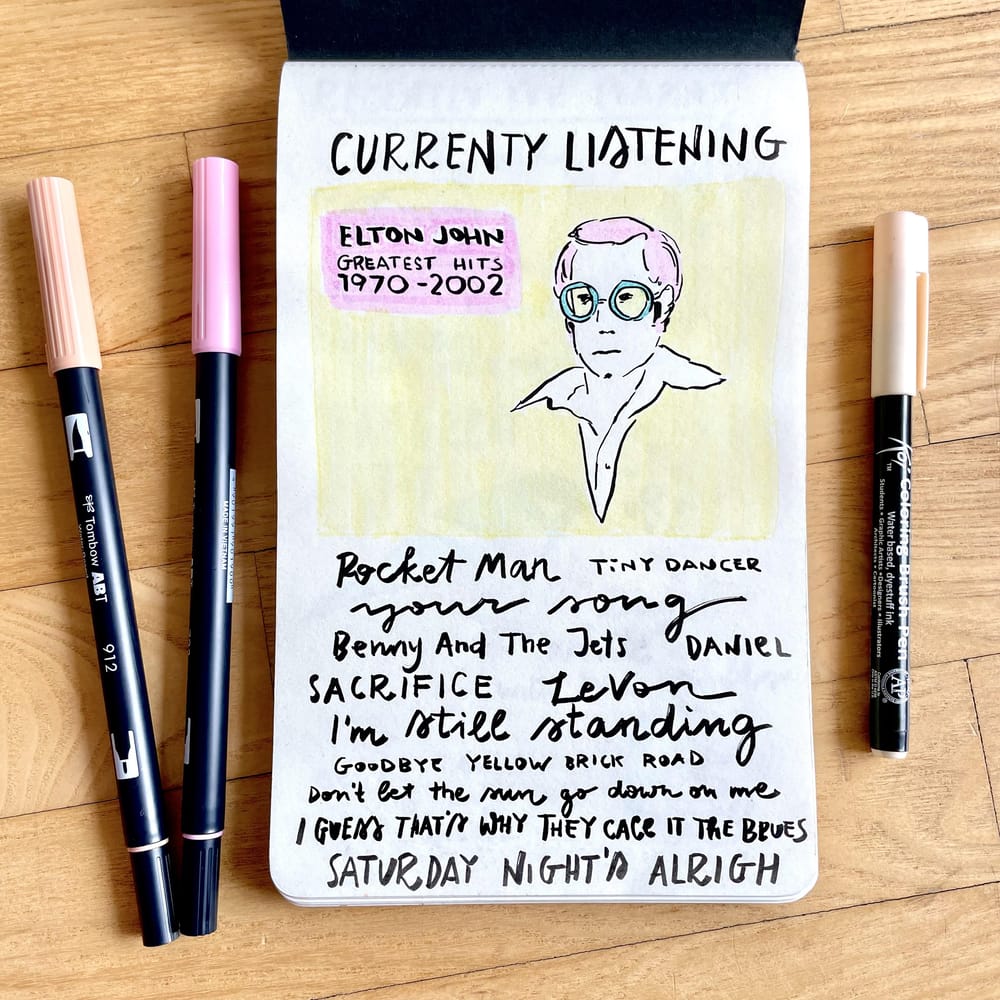 CURRENTY LISTENING
ELTON JOHN
GREATEST HITS
1970-2002
Rocket Man TiNY DANCER
your song
Benny And The Jets DANIEL
SACRIFICE LeVon
I'm still standing
GOODBYE YELLOW BRICK ROAD
Don't let the sun go down on me
I GUESS THAT'S WHY THEY CALL IT THE BLUES
SATURDAY NIGHT'S ALRIGH
Tombow ABT
912
MADE IN VIETNAM
Koi Coloring Brush Pen
TM
Water based, dyestuff ink
Students • Graphic Artists • Designers • Illustrators
AP